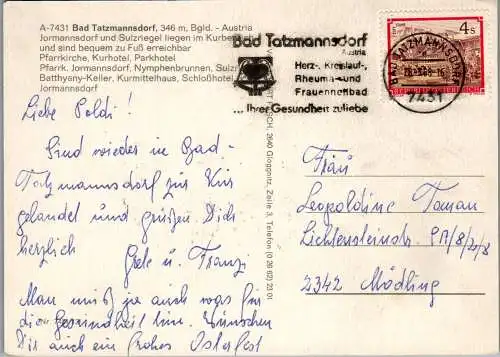 A-7431 Bad Tatzmannsdorf, 346 m, Bgld. - Austria
Jormannsdorf und Sulzriegel liegen im Kurbereich
und sind bequem zu Fuß erreichbar
Pfarrkirche, Kurhotel, Parkhotel
Pfarrk. Jormannsdorf, Nymphenbrunnen, Sulzr
Batthyany-Keller, Kurmittelhaus, Schloßhotel
Jormannsdorf
Bad Tatzmannsdorf
Austria
Herz-, Kreislauf-,
Rheuma- und
Frauenheilbad
... Ihrer Gesundheit zuliebe
4 S
BAD TATZMANNSDORF
7431
2640 Gloggnitz, Zeile 3, Telefon (0 26 62) 23 01
Liebe Poldi!
Sind wieder in Bad-
Tatzmannsdorf zur Kur
gelandet und grüßen Dich
herzlich Grete u. Franzi
Man muß ja auch was für
die Gesundheit tun. Wünschen
Dir auch ein frohes Osterfest
Frau
Leopoldine Toman
Lichtensteinstr.
2342 Mödling